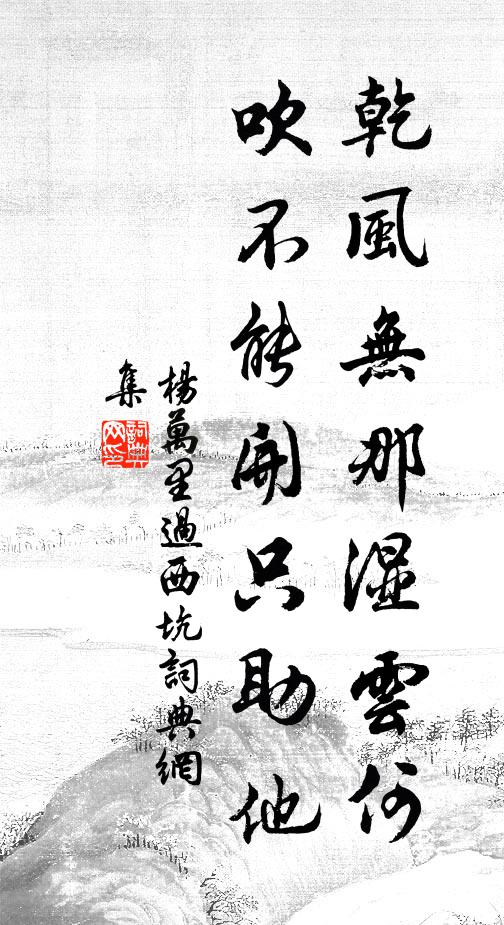 乾風無那濕雲何
吹不能開只助他
楊萬里過西坑詞典網
集